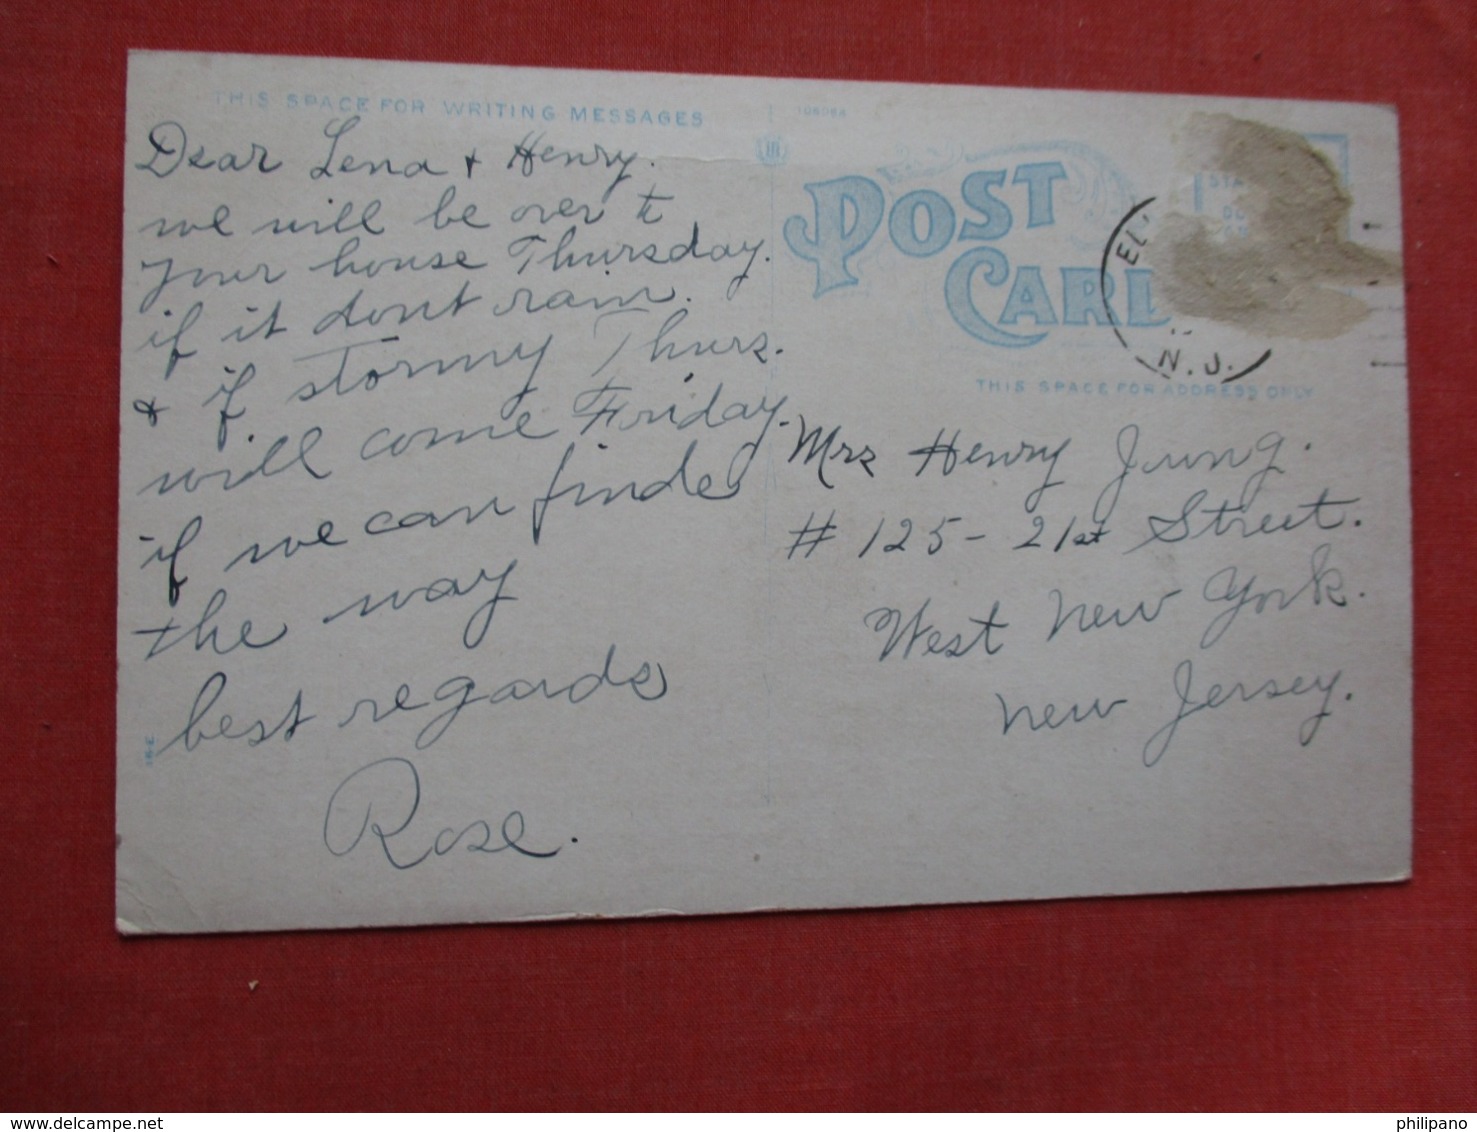 THIS SPACE FOR WRITING MESSAGES
Dear Lena + Henry.
we will be over to
your house Thursday.
if it dont rain.
& if stormy Thurs.
will come Friday.
if we can finde
the way
best regards
Rose.
POST
CARD
N.J.
THIS SPACE FOR ADDRESS ONLY
Mrs Henry Jung.
# 125 - 21st Street.
West New York.
New Jersey.
philipano